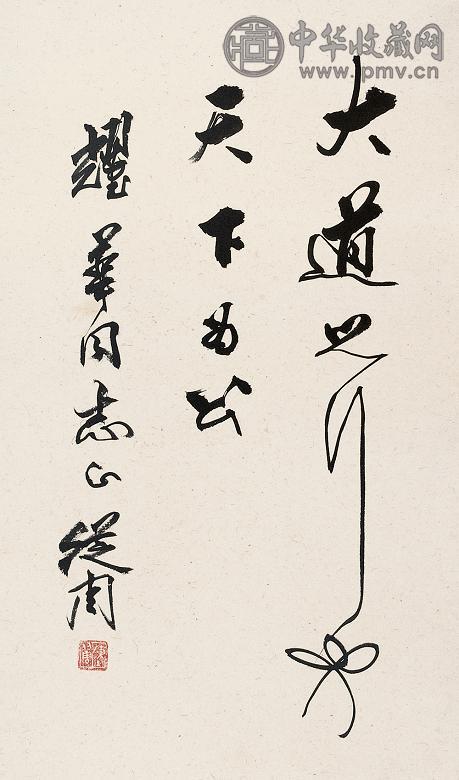 中华收藏网
www.ipmv.cn
大道之行也
天下为公
耀華同志正 從周